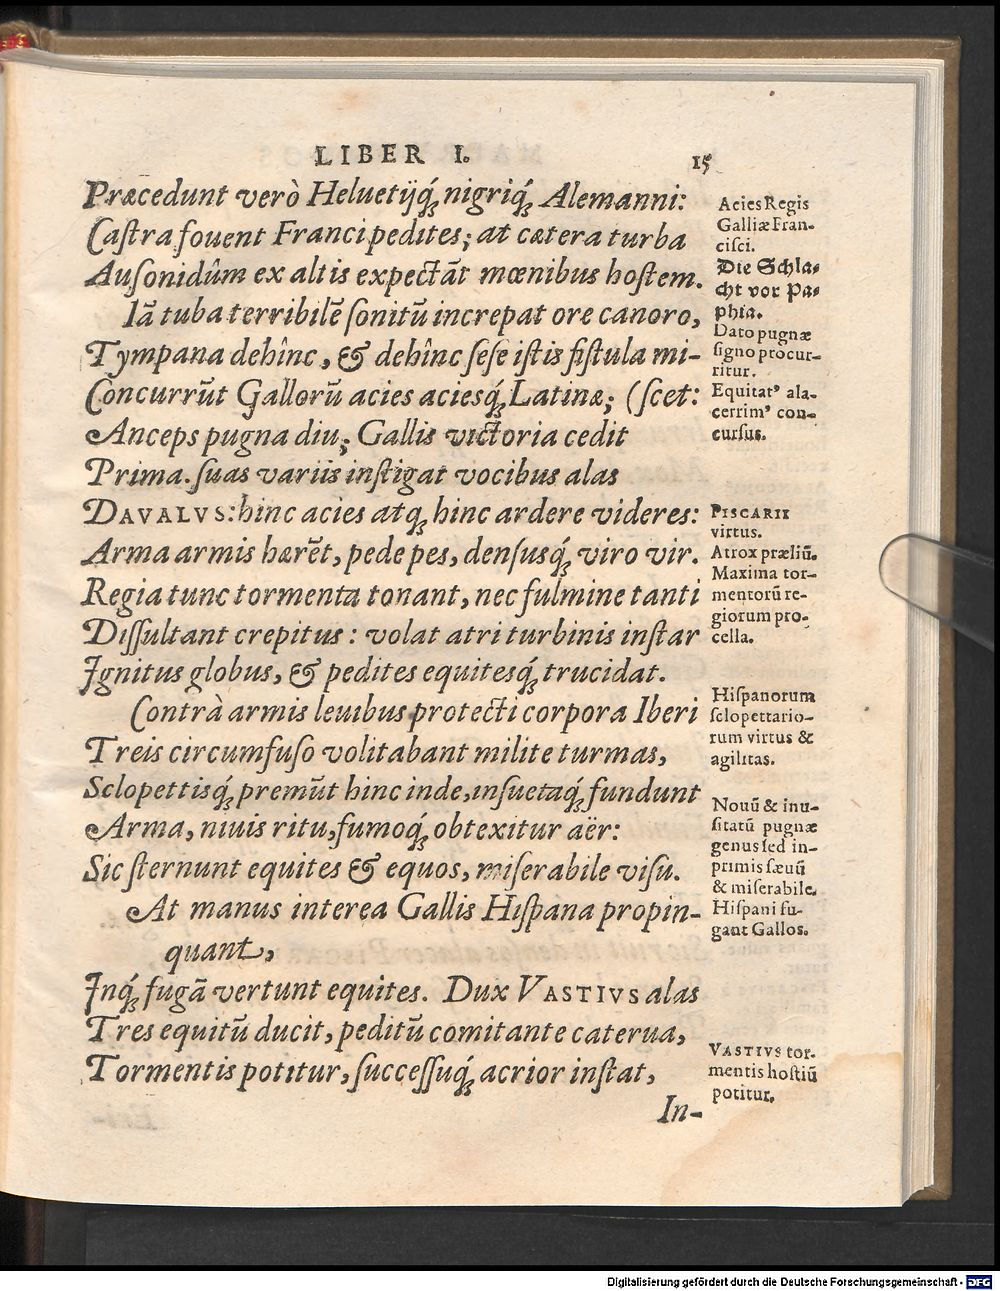 LIBER I. 15
Præcedunt verò Heluetijq́ꝫ nigriq́ꝫ Alemanni:
Castra fouent Franci pedites; at cætera turba
Ausonidûm ex altis expectãt mœnibus hostem.
Iã tuba terribilẽ sonitũ increpat ore canoro,
Tympana dehînc, & dehînc sese istis fistula mi-
Concurrũt Gallorũ acies aciesq́ꝫ Latinæ; (scet:
Anceps pugna diu; Gallis victoria cedit
Prima. suas variis instigat vocibus alas
DAVALVS: hinc acies atqꝫ hinc ardere videres:
Arma armis hærẽt, pede pes, densusq́ꝫ viro vir.
Regia tunc tormenta tonant, nec fulmine tanti
Dissultant crepitus: volat atri turbinis instar
Ignitus globus, & pedites equitesq́ꝫ trucidat.
Contrà armis leuibus protecti corpora Iberi
Treis circumfuso volitabant milite turmas,
Sclopettisq́ꝫ premũt hinc inde, insuetaq́ꝫ fundunt
Arma, niuis ritu, fumoq́ꝫ obtexitur aër:
Sic sternunt equites & equos, miserabile visu.
At manus interea Gallis Hispana propin-
quant,
Inq́ꝫ fugã vertunt equites. Dux VASTIVS alas
Tres equitũ ducit, peditũ comitante caterua,
Tormentis potitur, successuq́ꝫ acrior instat,
In-
Acies Regis
Galliæ Fran-
cisci.
Die Schla-
cht vor Pa-
phia.
Dato pugnæ
signo procur-
ritur.
Equitatꝰ ala-
cerrimꝰ con-
cursus.
PISCARII
virtus.
Atrox præliũ.
Maxima tor-
mentorũ re-
giorum pro-
cella.
Hispanorum
sclopettario-
rum virtus &
agilitas.
Nouũ & inu-
sitatũ pugnæ
genus sed in-
primis sæuũ
& miserabile.
Hispani fu-
gant Gallos.
VASTIVS tor-
mentis hostiũ
potitur.
Digitalisierung gefördert durch die Deutsche Forschungsgemeinschaft - DFG